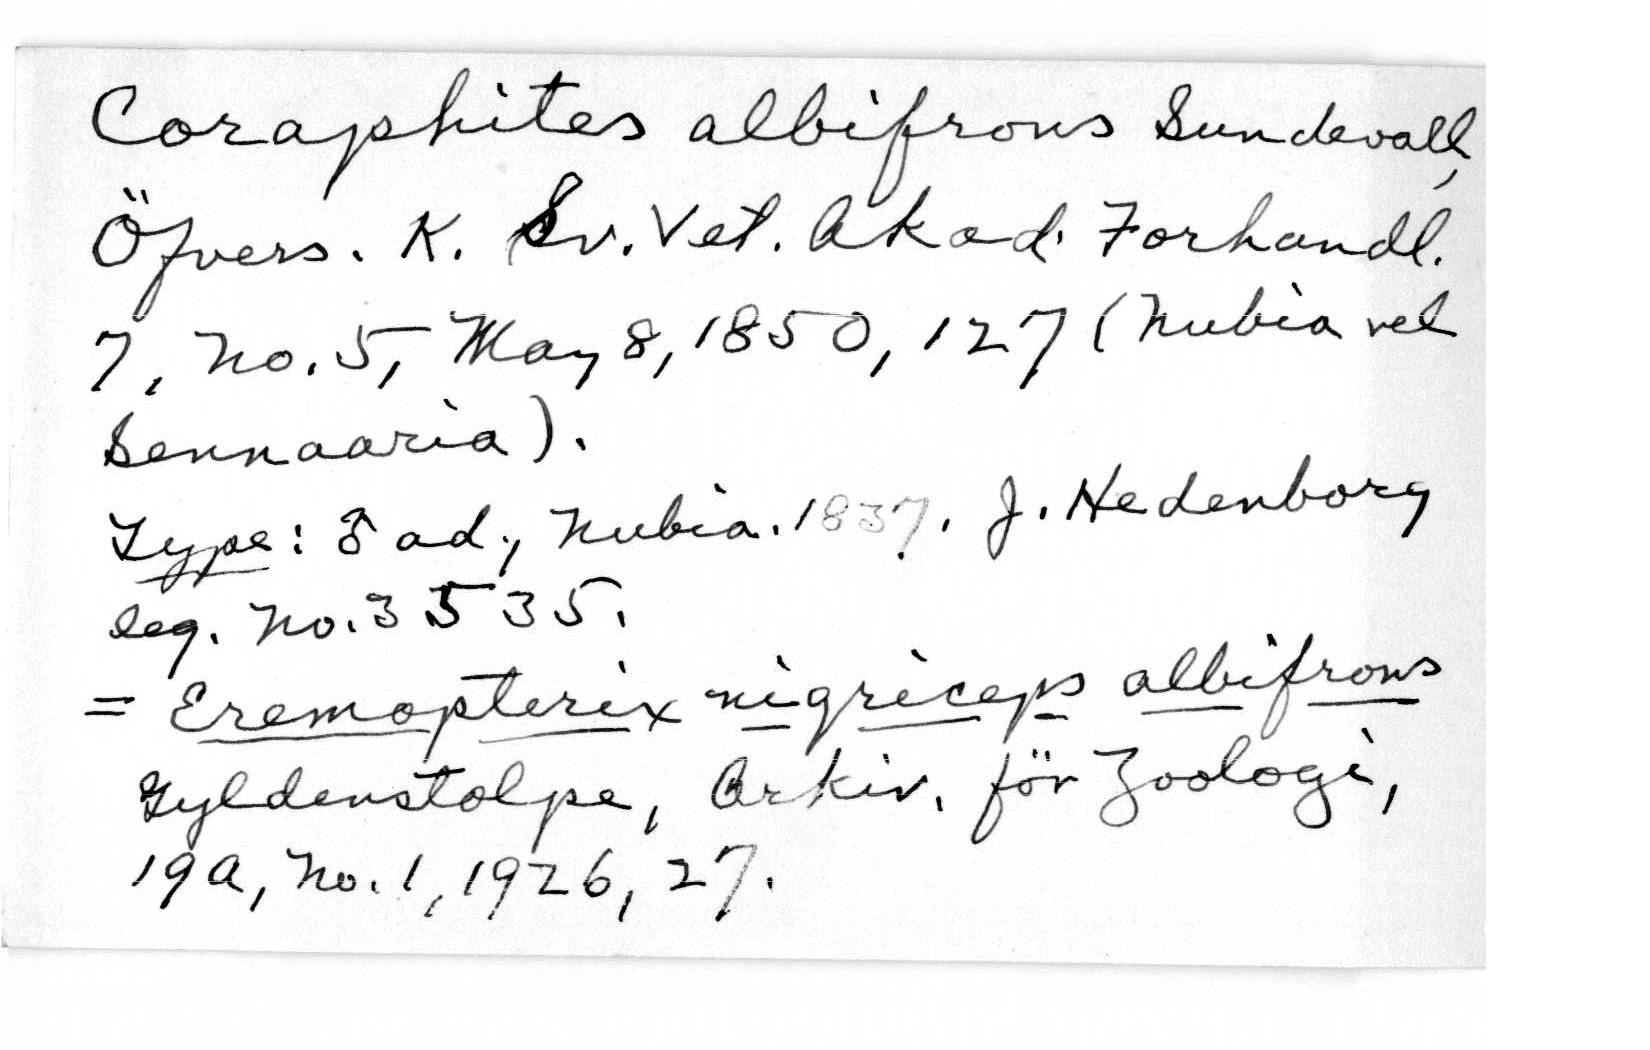 Coraphites albifrons Sundevall,
Öfvers. K. Sv. Vet. Akad. Forhandl.
7, No. 5, May 8, 1850, 127 (Nubia vel
Sennaaria).
Type: ♂ ad., Nubia. 1837. J. Hedenborg
leg. No. 3535.
= Eremopterix nigriceps albifrons
Gyldenstolpe, Arkiv. för Zoologi,
19A, No. 1, 1926, 27.